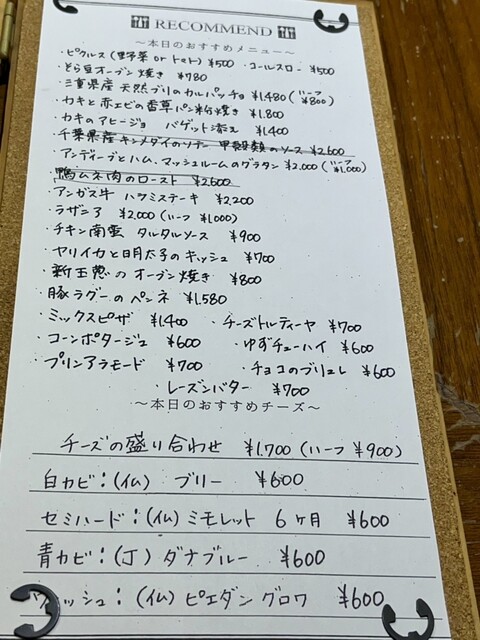 RECOMMEND
～本日のおすすめメニュー～
・ピクルス(野菜 or トマト) ¥500 ・コールスロー ¥500
・そら豆オーブン焼き ¥780
・三重県産 天然ブリのカルパッチョ ¥1,480 (ハーフ ¥800)
・カキと赤エビの香草パン粉焼き ¥1,800
・カキのアヒージョ バゲット添え ¥1,400
・千葉県産キンメダイのソテー 甲殻類のソース ¥2,600
・アンディーブとハム、マッシュルームのグラタン ¥2,000 (ハーフ ¥1,000)
・鴨ムネ肉のロースト ¥2,600
・アンガス牛 ハラミステーキ ¥2,200
・ラザニア ¥2,000 (ハーフ ¥1,000)
・チキン南蛮 タルタルソース ¥900
・ヤリイカと明太子のキッシュ ¥700
・新玉葱のオーブン焼き ¥800
・豚ラグーのペンネ ¥1,580
・ミックスピザ ¥1,400 ・チーズトルティーヤ ¥700
・コーンポタージュ ¥600 ・ゆずチューハイ ¥600
・プリンアラモード ¥700 ・チョコのブリュレ ¥600
・レーズンバター ¥700
～本日のおすすめチーズ～
チーズの盛り合わせ ¥1,700 (ハーフ ¥900)
白カビ：(仏) ブリー ¥600
セミハード：(仏) ミモレット 6ヶ月 ¥600
青カビ：(丁) ダナブルー ¥600
ウォッシュ：(仏) ピエダングロワ ¥600